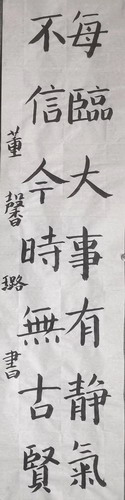 每臨大事有靜氣
不信今時無古賢
董馨璐書